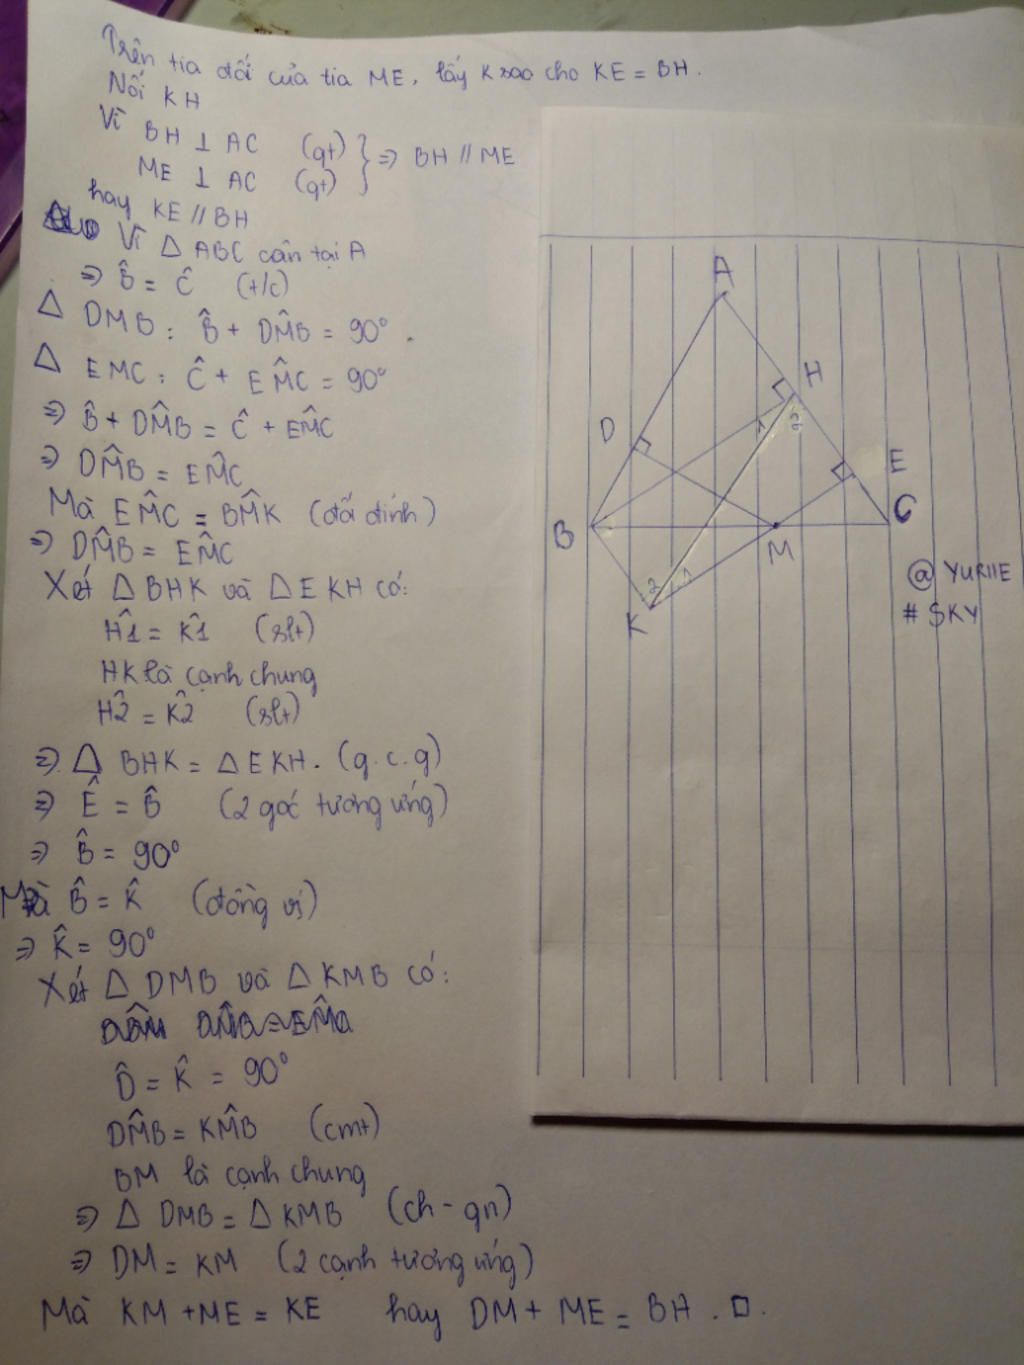 Trên tia đối của tia ME, lấy K sao cho KE = BH.
Nối KH
Vì BH ⊥ AC (gt)
ME ⊥ AC (gt) } => BH // ME
hay KE // BH
Vì △ ABC cân tại A
=> B̂ = Ĉ (t/c)
△ DMB : B̂ + DM̂B = 90° .
△ EMC : Ĉ + EM̂C = 90°
=> B̂ + DM̂B = Ĉ + EM̂C
=> DM̂B = EM̂C
Mà EM̂C = BM̂K (đối đỉnh)
=> DM̂B = EM̂C
Xét △ BHK và △ EKH có:
Ĥ1 = K̂1 (slt)
HK là cạnh chung
Ĥ2 = K̂2 (slt)
=> △ BHK = △ EKH. (g.c.g)
=> Ê = B̂ (2 góc tương ứng)
=> B̂ = 90°
Mà B̂ = K̂ (đồng vị)
=> K̂ = 90°
Xét △ DMB và △ KMB có:
D̂ = K̂ = 90°
DM̂B = KM̂B (cmt)
BM là cạnh chung
=> △ DMB = △ KMB (ch - gn)
=> DM = KM (2 cạnh tương ứng)
Mà KM + ME = KE hay DM + ME = BH . □.
A
H
D
1
2
E
B
C
M
2
1
K
@ YURIIE
# SKY